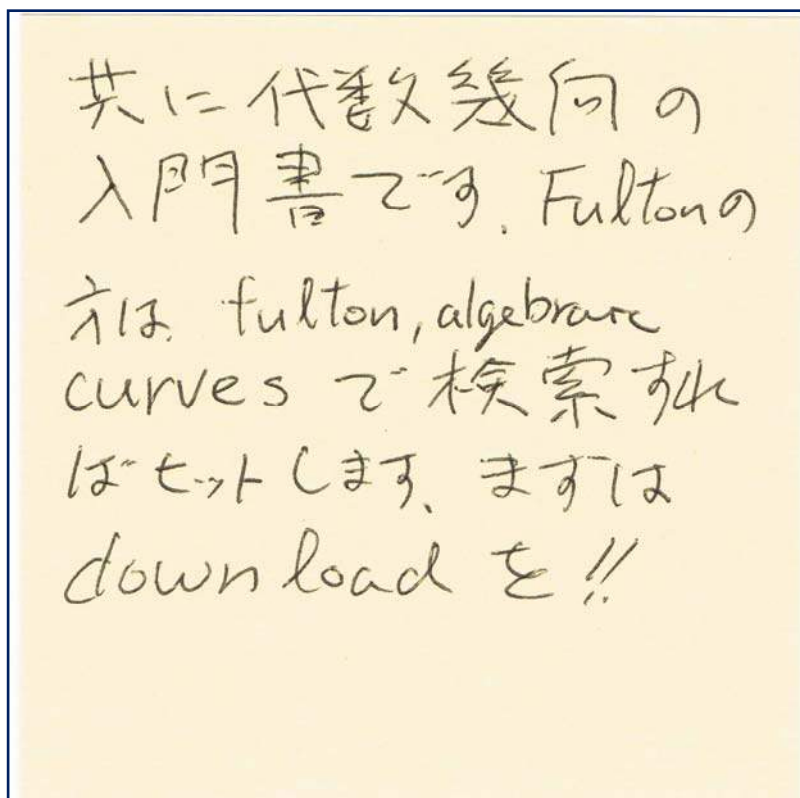 共に代数幾何の
入門書です. Fultonの
方は fulton, algebraic
curves で検索すれ
ばヒットします、まずは
download を!!